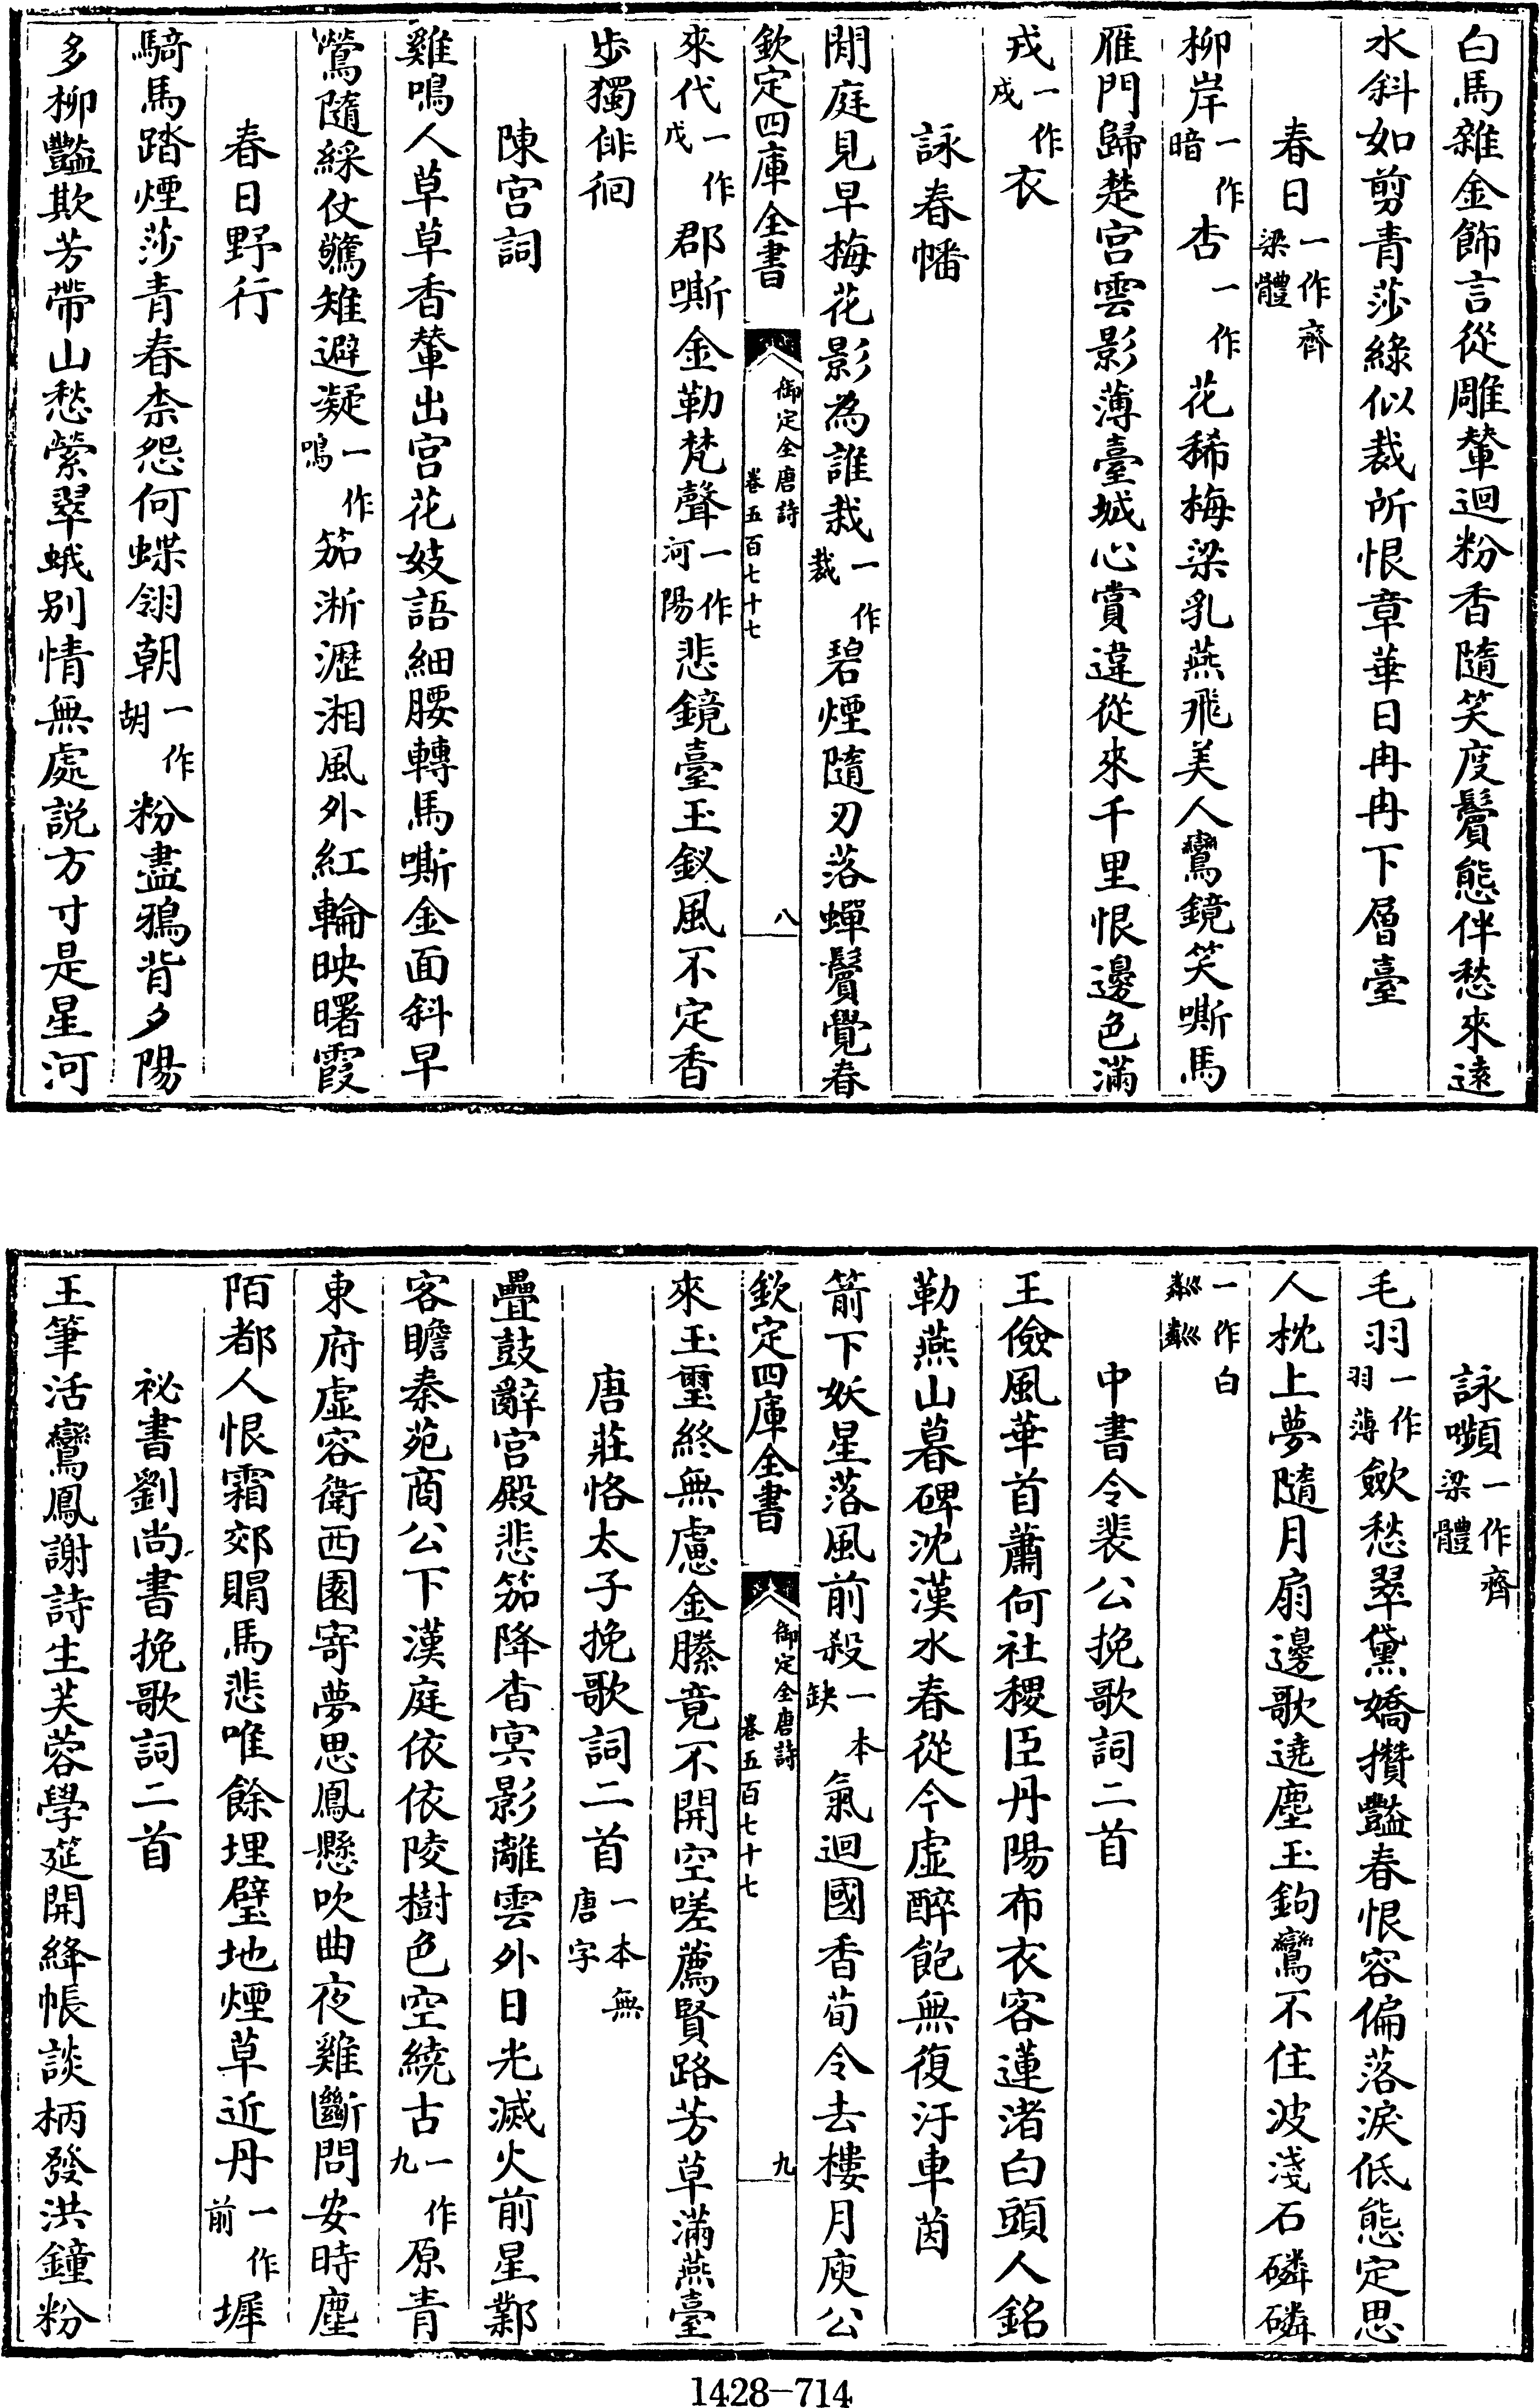 白馬雜金飾言從雕輦迴粉香隨笑度鬢態伴愁來遠
水斜如剪青莎綠似裁所恨章華日冉冉下層臺
春日一作齊梁體
柳岸一作暗杏一作花稀梅梁乳燕飛美人鸞鏡笑嘶馬
雁門歸楚宮雲影薄臺城心賞違從來千里恨邊色滿
戎一作戍衣
詠春幡
閒庭見早梅花影為誰栽一作裁碧煙隨刃落蟬鬢覺春
欽定四庫全書 御定全唐詩 卷五百七十七 八
來代一作戊郡嘶金勒梵聲一作河陽悲鏡臺玉釵風不定香
步獨徘徊
陳宮詞
雞鳴人草草香輦出宮花妓語細腰轉馬嘶金面斜早
鶯隨綵仗驚雉避凝一作鳴笳淅瀝湘風外紅輪映曙霞
春日野行
騎馬踏煙莎青春柰怨何蝶翎朝一作胡粉盡鴉背夕陽
多柳豔欺芳帶山愁縈翠蛾別情無處說方寸是星河
詠嚬一作齊梁體
毛羽一作羽薄斂愁翠黛嬌攢豔春恨容偏落淚低態定思
人枕上夢隨月扇邊歌遶塵玉鉤鸞不住波淺石磷磷
一作白粼粼
中書令裴公挽歌詞二首
王儉風華首蕭何社稷臣丹陽布衣客蓮渚白頭人銘
勒燕山暮碑沈漢水春從今虛醉飽無復汙車茵
箭下妖星落風前殺一本缺氣迴國香荀令去樓月庾公
欽定四庫全書 御定全唐詩 卷五百七十七 九
來玉璽終無慮金縢竟不開空嗟薦賢路芳草滿燕臺
唐莊恪太子挽歌詞二首一本無唐字
疊鼓辭宮殿悲笳降杳冥影離雲外日光滅火前星鄴
客瞻秦苑商公下漢庭依依陵樹色空繞古一作九原青
東府虛容衛西園寄夢思鳳懸吹曲夜雞斷問安時塵
陌都人恨霜郊賵馬悲唯餘埋璧地煙草近丹一作前墀
祕書劉尚書挽歌詞二首
王筆活鸞鳳謝詩生芙蓉學筵開絳帳談柄發洪鐘粉
1428-714